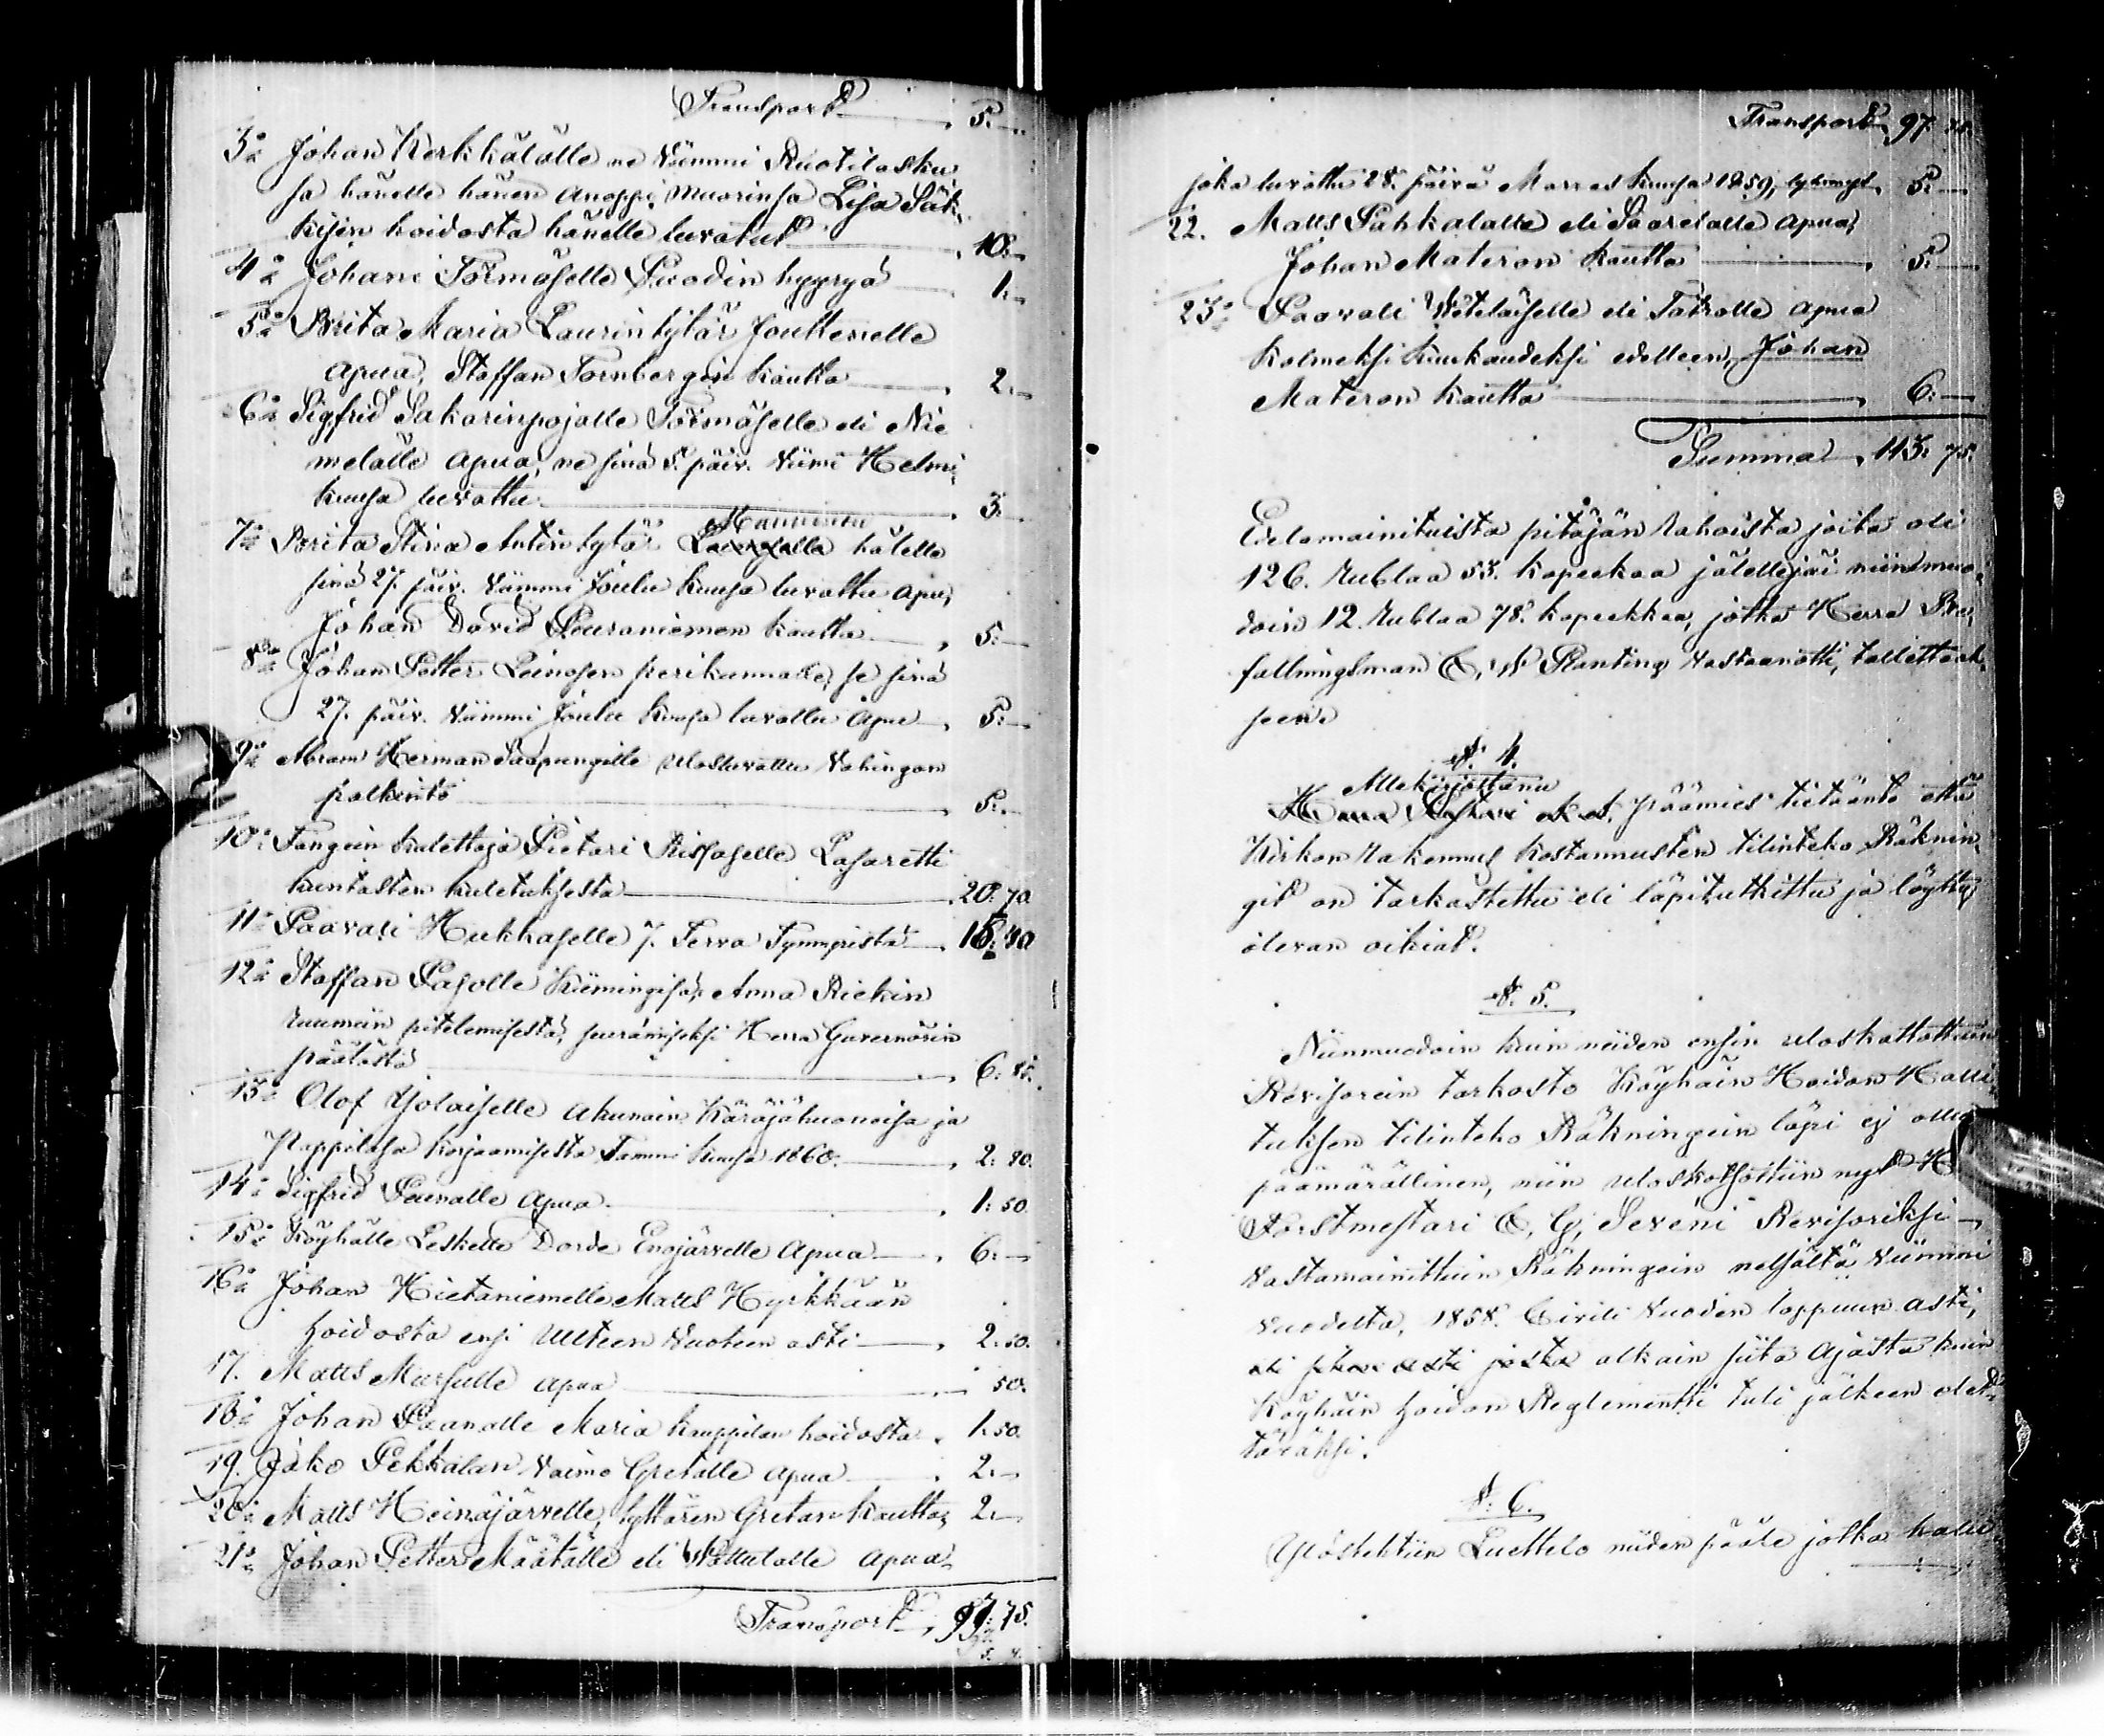 Transport 5.
3:o Johan Kerkkälälle ne Viimmi Ruotilasku
sa hänelle hänen Anoppi, muorinsa Lisa Säk,
kisin hoidosta hänelle luvatut 10:
4:o Johani Törmäselle Puodin hyyryä 1:
5:o Brita Maria Laurintytär Jouttenelle
apua, Staffan Tornbergin kautta 2:
6:o Sigfrid Sakarinpojalle Törmäselle eli Nie
melälle apua, ne sinä 5. päiv. Viimi Helmi,
kuusa luvattu 3:
7:o Brita Stina Antintytär Manninen hälelle
sinä 27. päiv. Viimmi Joulu kuusa luvattu apu,
Johan David Lauraniemen kautta 5:
8:o Johan Petter Leinosen perikunnalle, se sinä
27. päiv. Viimmi Joulu kuusa luvattu Apu 5:
9:o Abram Herman Saapungille ulosluvattu Vahingon
palkinto 5:
10: Fangein kulettaja Pietari Rissaselle Lasaretti
kuntasten kuletuksesta 20: 70.
11:o Paavali Hukkaselle 7. Terva Tynnyristä 16: 40
12:o Staffan Pasolle Kiimingisä, Anna Riekin
ruumiin pitelemisestä, seuraamiseksi Herra Guvernörin
päätöstä 6: 85.
13:o Olof Yjolaiselle akunain Käräjähuoneisa ja
Pappilasa korjaamisesta Tammi kuusa 1860. 2: 80.
14:o Sigfrid Paunalle apua 1: 50.
15:o Köyhälle Leskelle Dorde Enojärvelle apua 6:
16:o Johan Hietaniemelle Matts Hyrkkään
hoidosta ensi Uuteen Vuoteen asti 2: 50.
17. Matts Mursulle apua 50.
18:o Johan Paanalle Maria kauppilan hoidosta 1: 50.
19. Jako Pekkalan Vaimo Gretalle apua 2:
20:o Matts Heinäjärvelle, tyttären Gretan kautta, 2:
21:o Johan Petter Määtälle eli Wattulalle apua,
Transport 97: 75.
Transport 97. 75.
joka luvattu 28. päivä Marras kuusa 1859, 5:
22. Matts Pahkalalle eli Saarelalle apua,
Johan Materon kautta 5:
23:o Paavali Weteläiselle eli Takolle apua
kolmeksi kuukaudeksi edelleen, Johan
Materon kautta 6:
Summa 113: 75.
Edelämainituista pitäjän rahoista joita oli
126. Rublaa 53. kopeekaa jälellejäi niinmuo,
doin 12. Rublaa 78. kopeekkaa, jotka Herra Be,
fallningsman E. W. Planting vastaanotti, tallettaak,
seen.
§. 4.
Allekirjoittanu
päämies tietäänto että
Kirkon rakennus kostannusten tilinteko Räknin,
git on tarkastettu eli läpitutkittu ja löytty
olevan oikiat.
§. 5.
Niinmuodoin kuin niiden ensin uloskattottuin
Revisorein tarkasto Köyhäin Hoidon Halli,
tuksen tilinteko Räkningein läpi ej ollu
päämärällinen, niin uloskattottiin nyt H
Forstmestari E. G. Seveni Revisoriksi
vastamainittuin Räkningein neljältä Viimmi
vuodelta, 1858. Civili Vuoden loppuun asti,
alkain siitä Ajasta kuin
Köyhäin hoidon Reglementti tuli jälkeen elet,
täväksi.
§. 6.
Ylöstehtiin Luettelo niiden pääle jotka halu